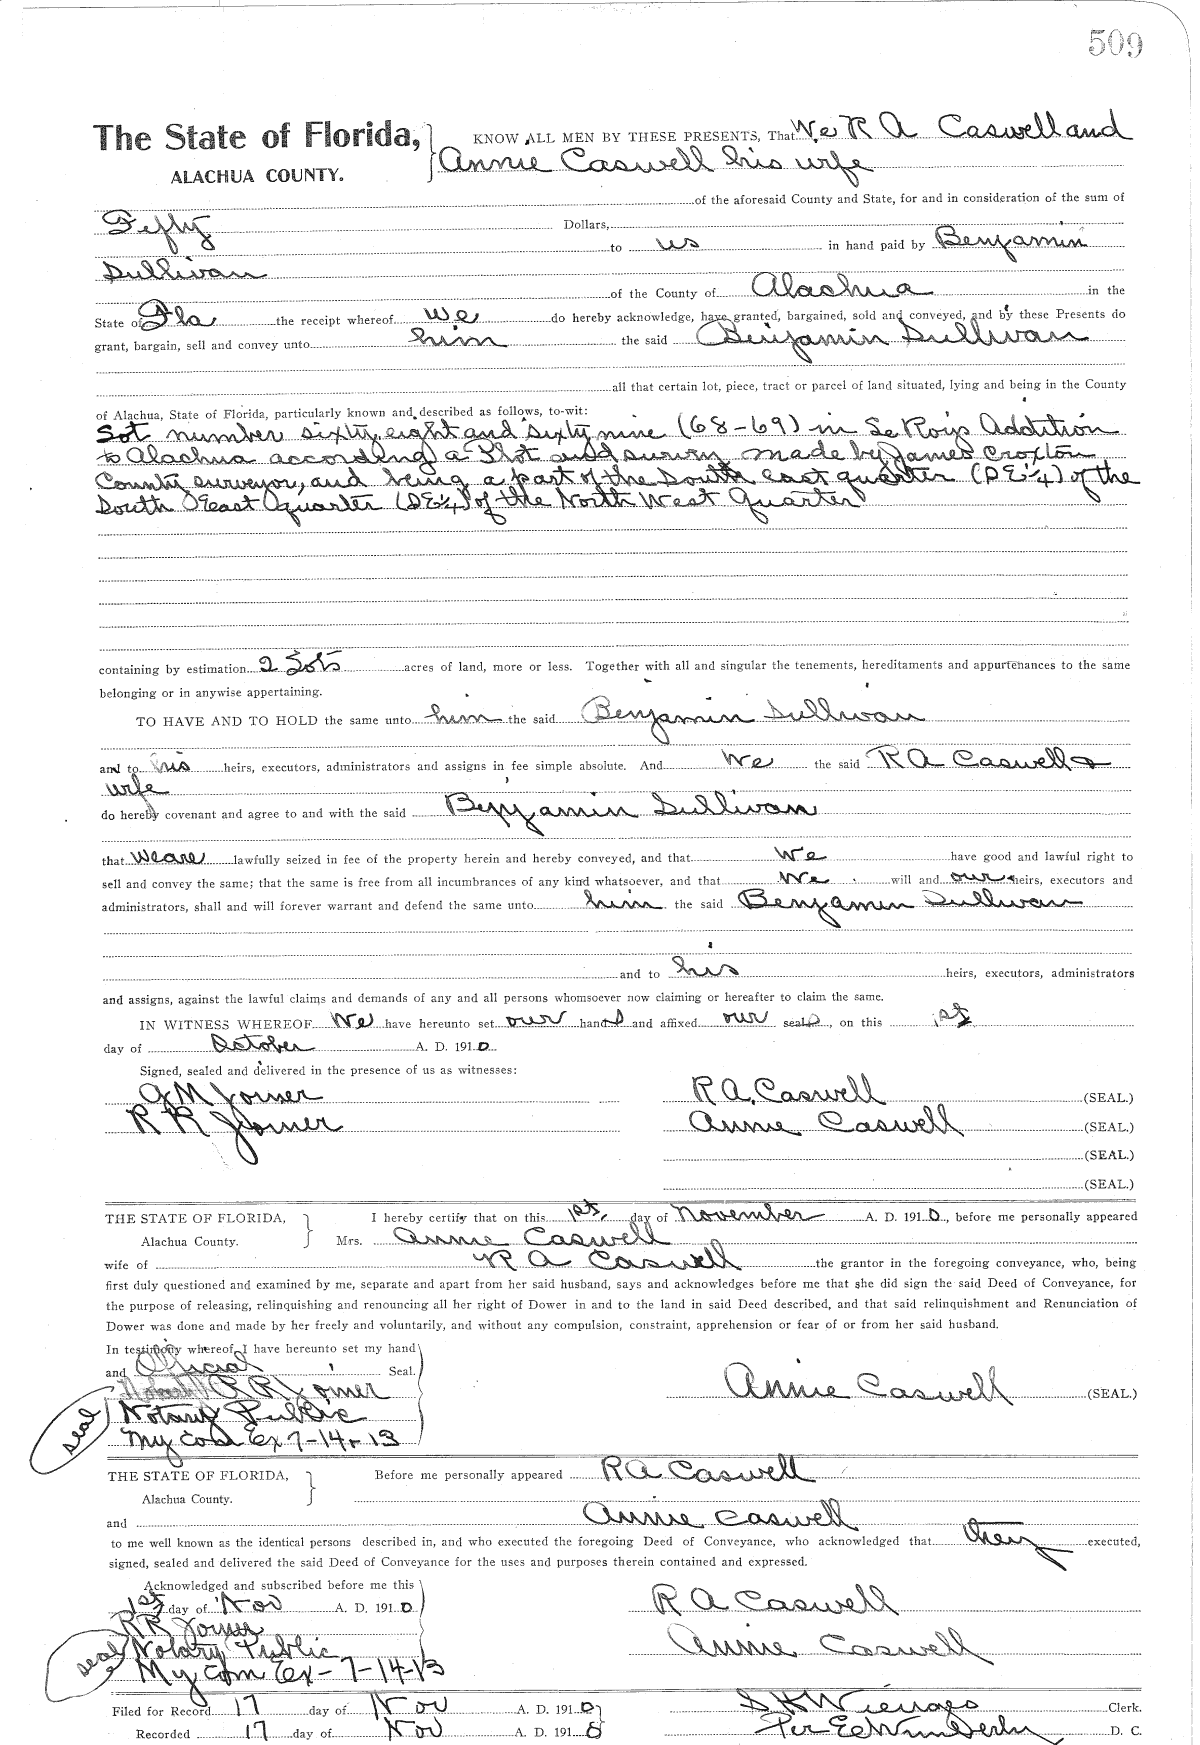 509
The State of Florida, KNOW ALL MEN BY THESE PRESENTS, That We R A Caswell and
ALACHUA COUNTY. Annie Caswell his wife
of the aforesaid County and State, for and in consideration of the sum of
Fifty Dollars,
to us in hand paid by Benjamin
Sullivan
of the County of Alachua in the
State of Fla the receipt whereof we do hereby acknowledge, have granted, bargained, sold and conveyed, and by these Presents do
grant, bargain, sell and convey unto him the said Benjamin Sullivan
all that certain lot, piece, tract or parcel of land situated, lying and being in the County
of Alachua, State of Florida, particularly known and described as follows, to-wit:
Lot number sixty eight and sixty nine (68-69) in LeRoys Addition
to Alachua according a Plot and survey made by James Croxton
County surveyor, and being a part of the South East quarter (SE¼) of the
South East Quarter (SE¼) of the North West Quarter
containing by estimation 2 Lots acres of land, more or less. Together with all and singular the tenements, hereditaments and appurtenances to the same
belonging or in anywise appertaining.
TO HAVE AND TO HOLD the same unto him the said Benjamin Sullivan
and to his heirs, executors, administrators and assigns in fee simple absolute. And We the said R A Caswell &
wife
do hereby covenant and agree to and with the said Benjamin Sullivan
that we are lawfully seized in fee of the property herein and hereby conveyed, and that we have good and lawful right to
sell and convey the same; that the same is free from all incumbrances of any kind whatsoever, and that we will and our heirs, executors and
administrators, shall and will forever warrant and defend the same unto him the said Benjamin Sullivan
and to his heirs, executors, administrators
and assigns, against the lawful claims and demands of any and all persons whomsoever now claiming or hereafter to claim the same.
IN WITNESS WHEREOF We have hereunto set our hands and affixed our seals, on this 1st
day of October A. D. 1910.
Signed, sealed and delivered in the presence of us as witnesses:
G M Joiner R A. Caswell (SEAL.)
R R Joiner Annie Caswell (SEAL.)
(SEAL.)
(SEAL.)
THE STATE OF FLORIDA, I hereby certify that on this 1st, day of November A. D. 1910, before me personally appeared
Alachua County. Mrs. Annie Caswell
wife of R A Caswell the grantor in the foregoing conveyance, who, being
first duly questioned and examined by me, separate and apart from her said husband, says and acknowledges before me that she did sign the said Deed of Conveyance, for
the purpose of releasing, relinquishing and renouncing all her right of Dower in and to the land in said Deed described, and that said relinquishment and Renunciation of
Dower was done and made by her freely and voluntarily, and without any compulsion, constraint, apprehension or fear of or from her said husband.
In testimony whereof, I have hereunto set my hand
and Official Seal.
R R Joiner Annie Caswell (SEAL.)
seal Notary Public
My Com Ex 7-14-13
THE STATE OF FLORIDA, Before me personally appeared R A Caswell
Alachua County.
and Annie Caswell
to me well known as the identical persons described in, and who executed the foregoing Deed of Conveyance, who acknowledged that they executed,
signed, sealed and delivered the said Deed of Conveyance for the uses and purposes therein contained and expressed.
Acknowledged and subscribed before me this
1st day of Nov A. D. 1910 R A Caswell
R R Joiner
seal Notary Public Annie Caswell
My Com Ex-7-14-13
Filed for Record 17 day of Nov A. D. 1910 S H Wienges Clerk.
Recorded 17 day of Nov A. D. 1910 Per D. C.